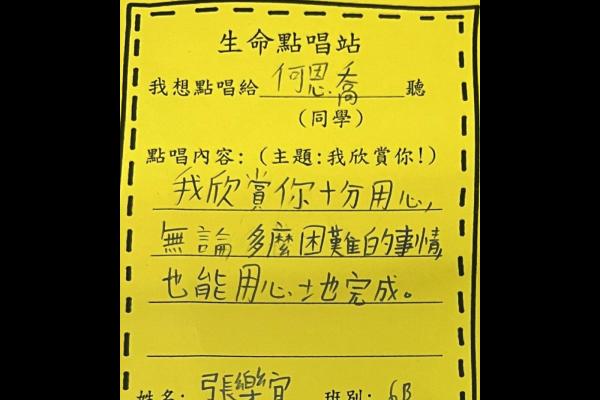 生命點唱站
我想點唱給何恩喬聽
(同學)
點唱內容:(主題:我欣賞你!)
我欣賞你十分用心,
無論多麼困難的事情,
也能用心地完成。
姓名:張樂宜 班別:6B